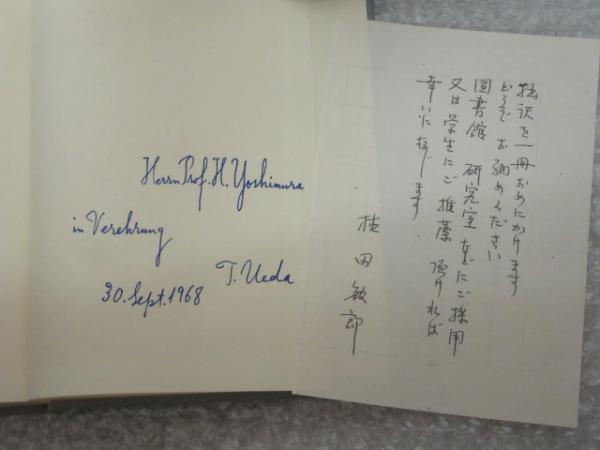 Herrn Prof. H. Yoshimura
in Verehrung
T. Ueda
30. Sept. 1968
拙訳を一冊おめにかけます
どうぞ お納めください
図書館 研究室などにご採用
又は学生にご推薦 頂ければ
幸いに存じます.
植田敏郎